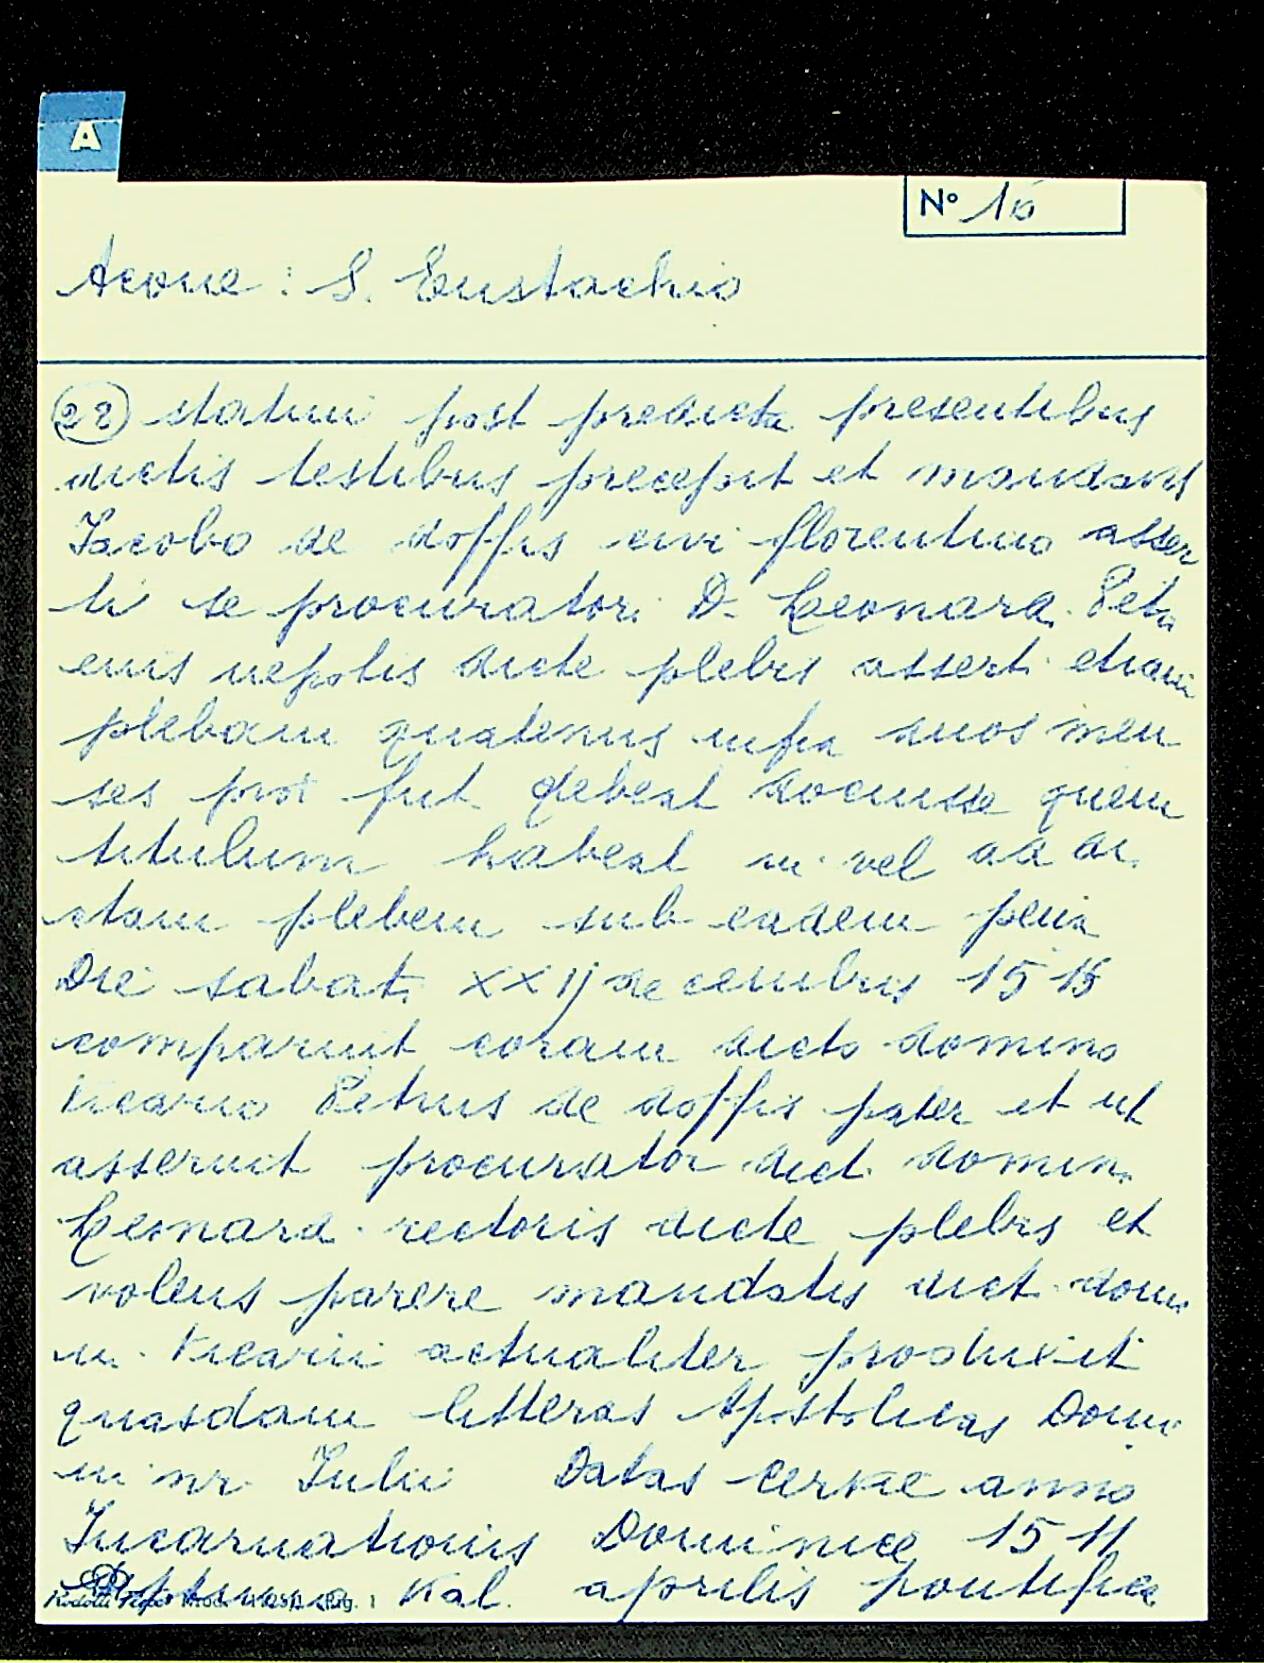 A
N° 16
Acone : S. Eustachio
(28) statim post predicta presentibus
dictis testibus precepit et mandavit
Jacobo de doffis civi florentino asser
ti se procuratori D. Leonard. Petri
eius nepotis dicte plebis assert. etiam
plebani quatenus infra duos men
ses prox fut. debeat docuisse quem
titulum habeat in vel ad di
ctam plebem sub eadem pena
Die sabati XXIJ decembris 1515
comparuit coram dicto domino
Vicario Petrus de doffis pater et ut
asseruit procurator dict. domin.
Leonard. rectoris dicte plebis et
volens parere mandatis dict. domi
ni Vicarii actualiter produxit
quasdam litteras Apostolicas Domi
ni nr. Iulii Datas Cervie anno
Incarnationis Dominice 1511
Kal. aprilis pontifica